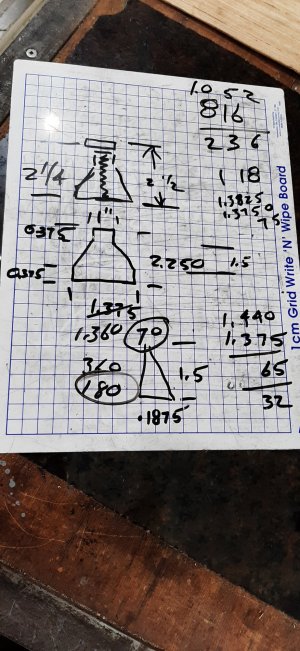 1.052
816
236
118
1.3825
1.3750
75
2 1/4
2 1/2
1"
0.375
0.375
2.250
1.5
1.375
1.360
70
360
180
1.5
.1875
1.440
1.375
65
32
1cm Grid Write 'N' Wipe Board